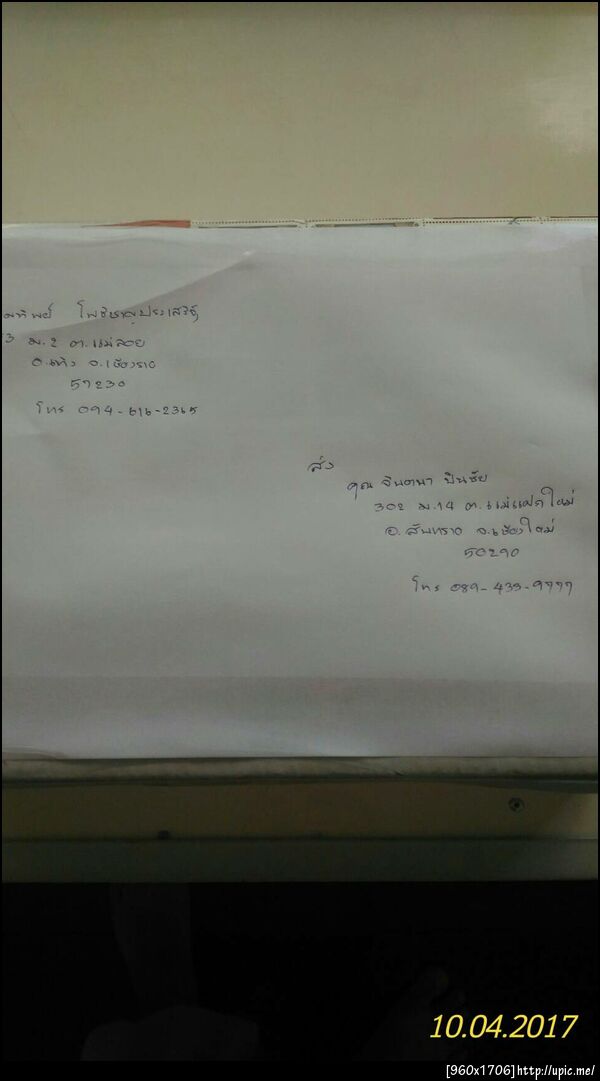 โพธิชาญประเสริฐ
3 ม.2 ต.แม่ลอย
อ.เทิง จ.เชียงราย
57230
โทร 094-616-2365
ส่ง
คุณ จินตนา ปินชัย
302 ม.14 ต.แม่แฝกใหม่
อ.สันทราย จ.เชียงใหม่
50290
โทร 089-433-9777
10.04.2017
[960x1706]http://upic.me/